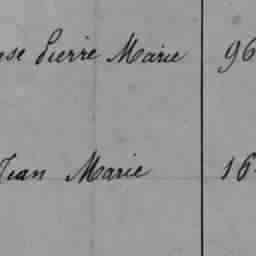 Pierre Marie 96
Jean Marie 16